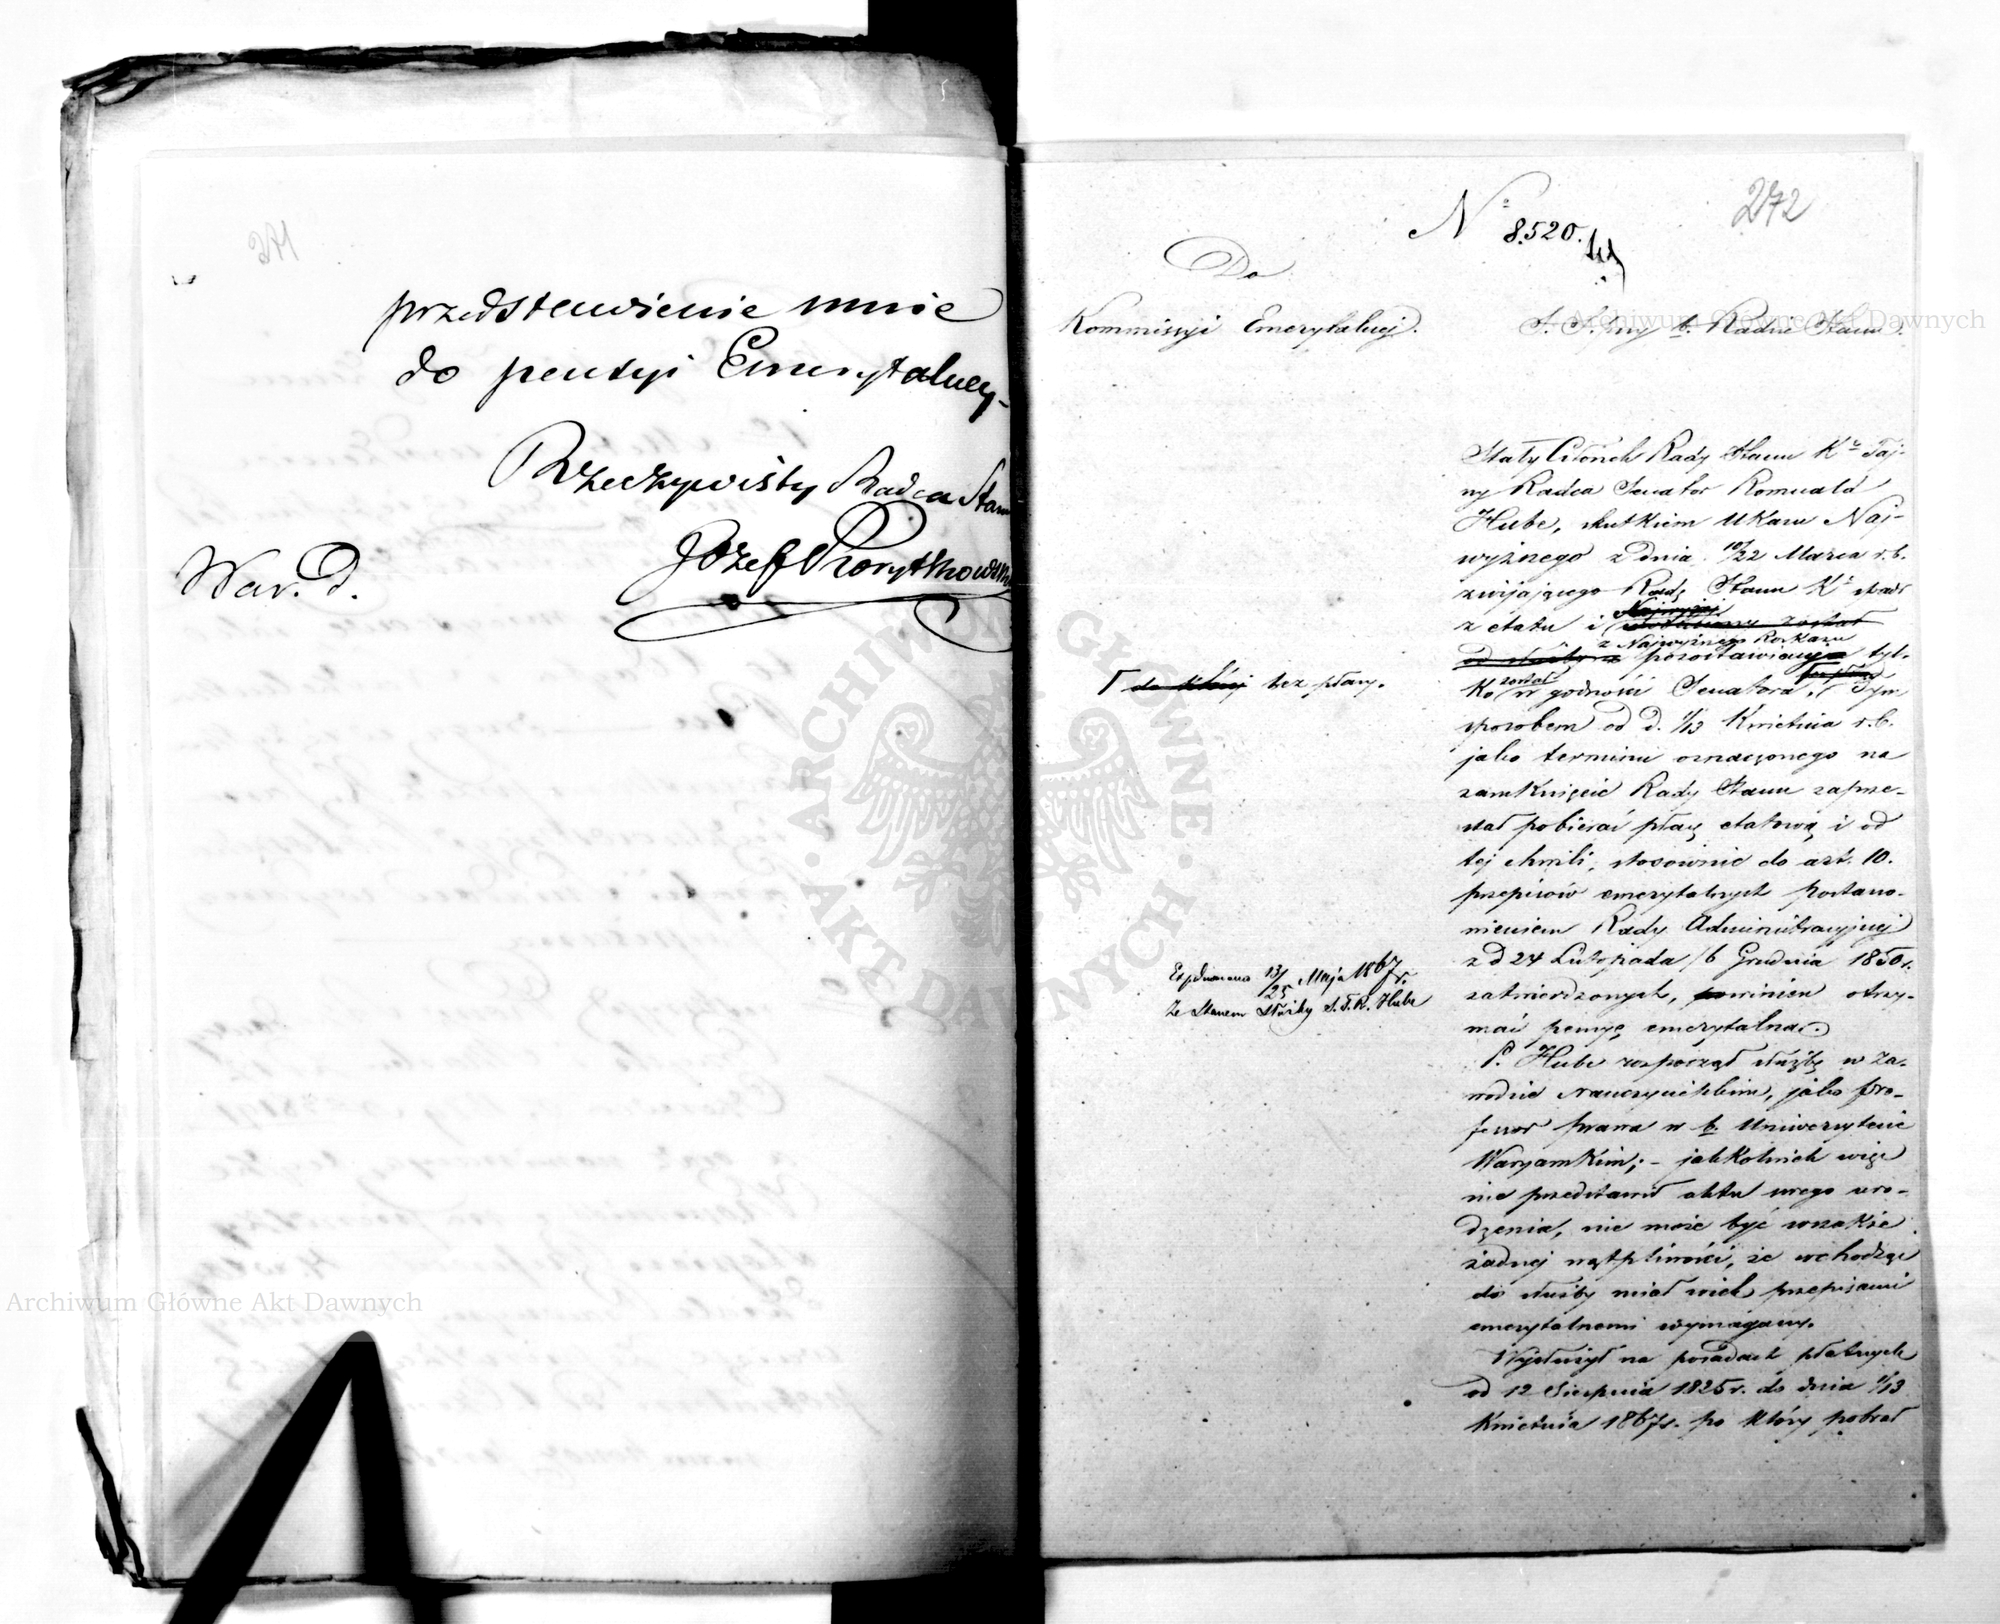 przedstawienie mnie
do pensyi Emerytalnej.
Rzeczywisty Radca Stanu
Józef Korytkowski
War. D.
272
N° 8520.
Do
Kommissyi Emerytalnej.
S. S. przy b. Radzie Stanu.
Stały Członek Rady Stanu Kr Taj-
ny Radca Senator Romuald
Hube, skutkiem Ukazu Naj-
wyższego z dnia 10/22 Marca r.b.
zwijającego Radę Stanu Kr spadł
z etatu i Najwyżej
z Najwyższego Rozkazu
od służby pozostawiony tyl-
ko został w godności Senatora, bez płacy Tym
Γ do której bez płacy.
sposobem od d. 1/13 Kwietnia r.b.
jako terminu oznaczonego na
zamknięcie Rady Stanu zaprze-
stał pobierać płacę etatową i od
tej chwili, stosownie do art. 10.
przepisów emerytalnych postano-
wieniem Rady Administracyjnej
z d 24 Listopada /6 Grudnia 1850 r.
zatwierdzonych, powinien otrzy-
mać pensyę emerytalną.
Expediowano 13/25 Maja 1867 r.
Ze Stanem Służby S. T. R. Hube
P. Hube rozpoczął służbę w za-
wodzie Nauczycielskim, jako pro-
fessor prawa w b. Uniwersytecie
Warszawskim; – jakkolwiek więc
nie przedstawił aktu swego uro-
dzenia, nie może być wszakże
żadnej wątpliwości, że wchodząc
do służby miał wiek przepisami
emerytalnemi wymagany.
Wysłużył na posadach płatnych
od 12 Sierpnia 1825 r. do dnia 1/13
Kwietnia 1867 r. po który pobrał
Archiwum Główne Akt Dawnych
Archiwum Główne Akt Dawnych
ARCHIWUM GŁÓWNE AKT DAWNYCH